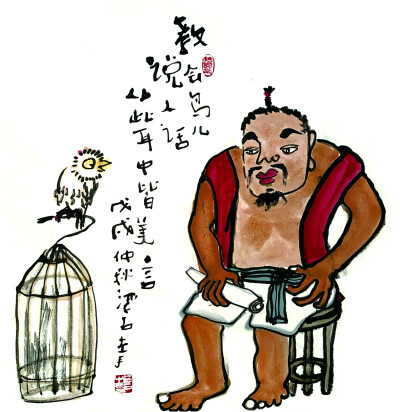 教会鸟儿
说人话
从此耳中皆美言
戊戌仲秋